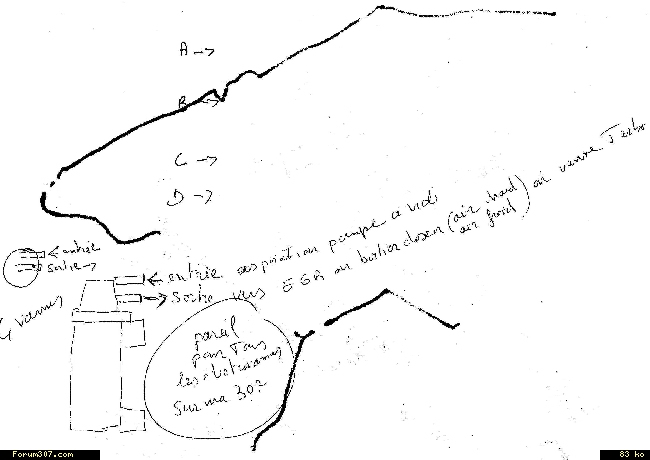 A →
B →
C →
D →
← entrée
Sortie →
← entrée aspiration pompe a vide
→ Sortie vers EGR ou boitier doseur (air chaud) ou vanne Turbo
air froid
vannes
pareil
pour Tous
les électrovannes
Sur ma 307
Forum307.com
83 ko